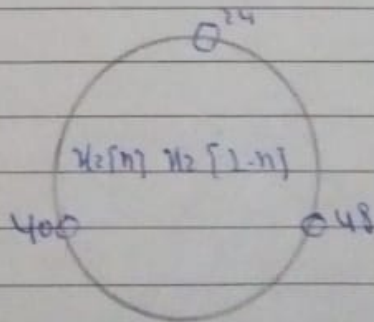 24
x₂[n] x₂[1-n]
40 48